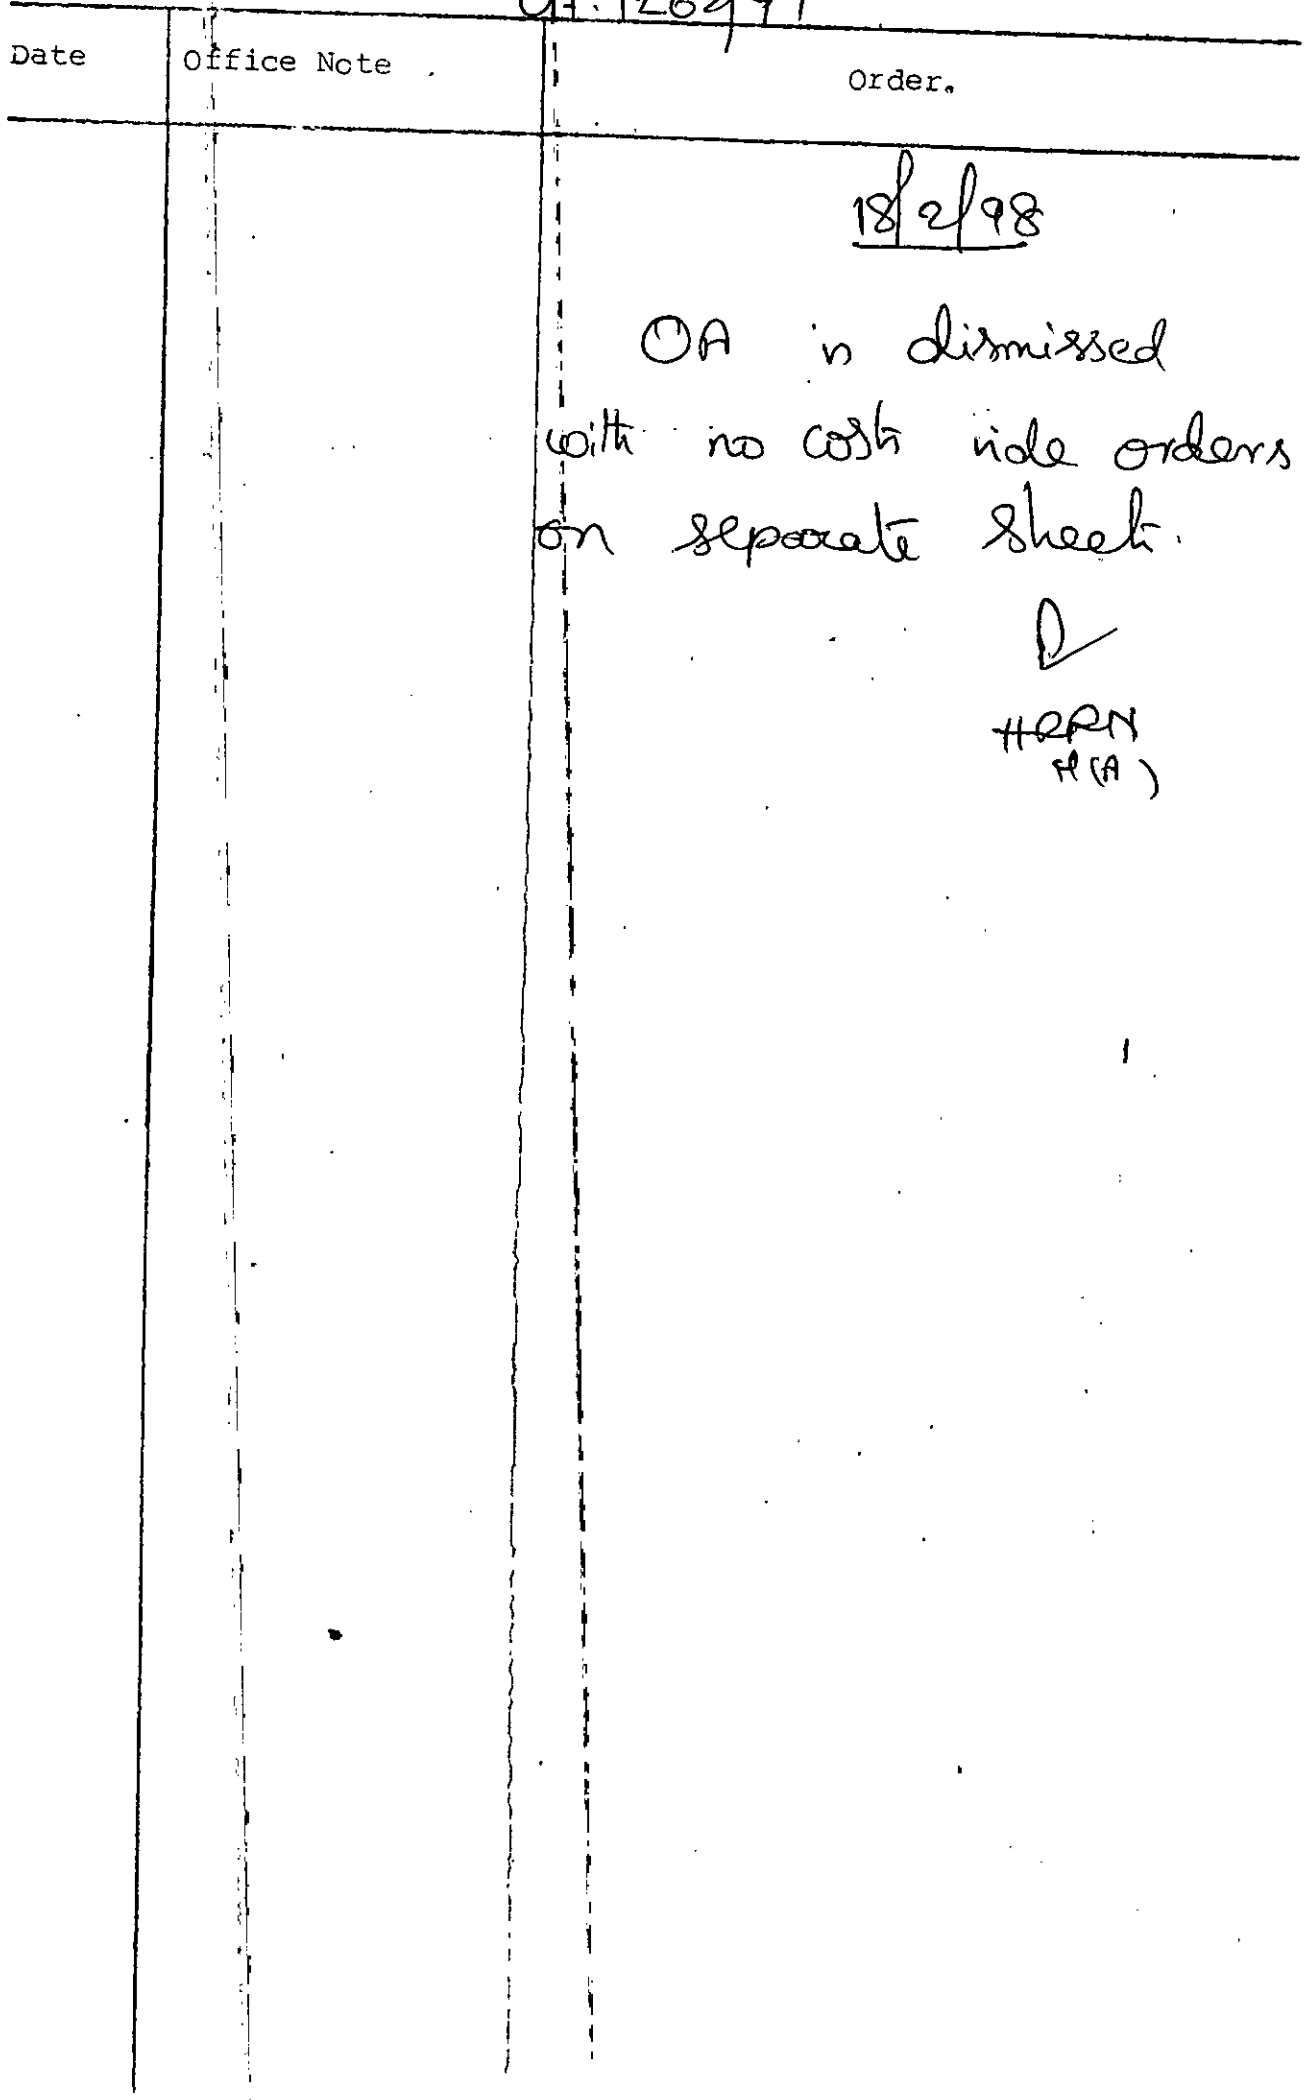 Date Office Note Order.
18/2/98
OA is dismissed
with no costs vide orders
on separate sheet.
HRRN
M(A)